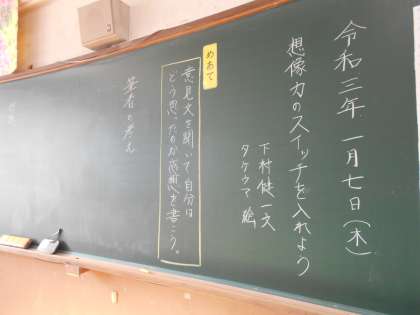 令和三年 一月七日(木)
想像力のスイッチを入れよう
下村健一 文
タケウマ 絵
めあて
意見文を聞いて自分は
どう思ったのか感想を書こう。
筆者の考え